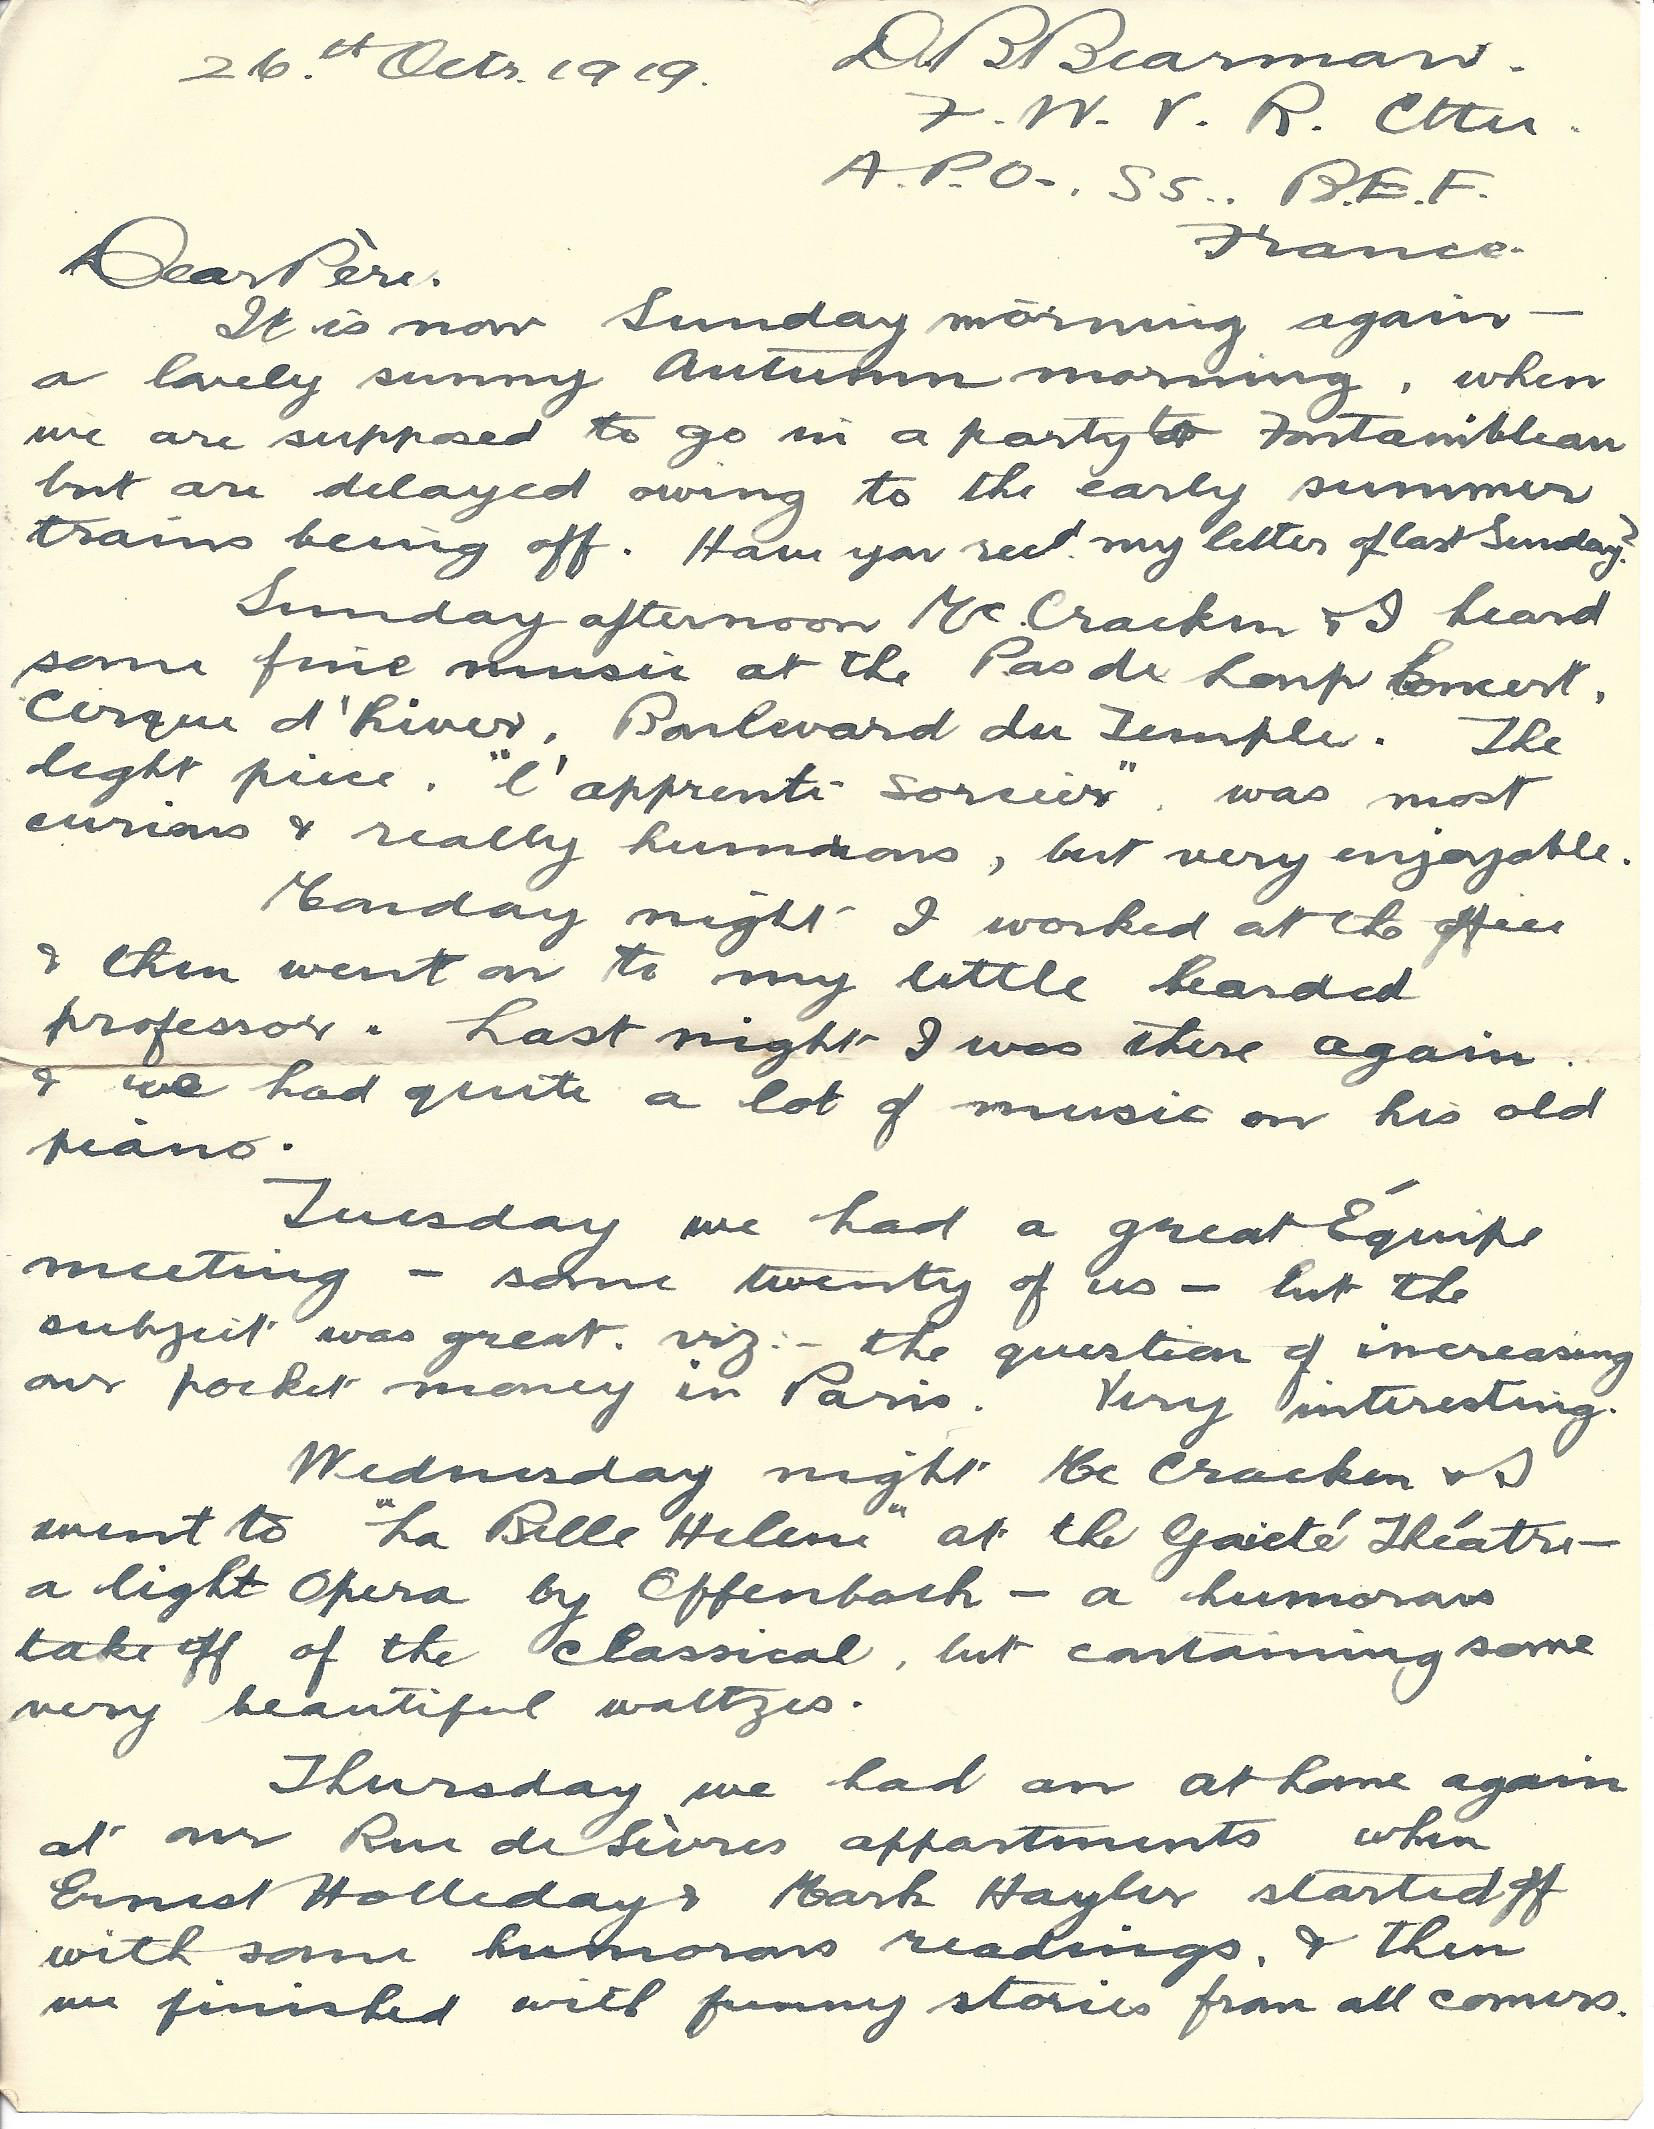 26.th Octr. 1919.
D. B Bearman.
F. W. V. R. Cttee.
A.P.O., S5., B.E.F.
France.
Dear Père.
It is now Sunday morning again —
a lovely sunny Autumn morning, when
we are supposed to go in a party to Fontainbleau
but are delayed owing to the early summer
trains being off. Have you recd. my letter of last Sunday?
Sunday afternoon McCracken & I heard
some fine music at the Pas de Loup Concert,
Cirque d'hiver, Boulevard du Temple. The
light piece, "l'apprenti sorcier", was most
curious & really humorous, but very enjoyable.
Monday night I worked at the office
& then went on to my little bearded
professor. Last night I was there again
& we had quite a lot of music on his old
piano.
Tuesday we had a great Équipe
meeting - some twenty of us - but the
subject was great. viz:- the question of increasing
our pocket money in Paris. Very interesting.
Wednesday night McCracken & I
went to "La Belle Helene" at the Gaieté Théatre —
a light Opera by Offenbach — a humorous
take off of the classical, but containing some
very beautiful waltzes.
Thursday we had an at home again
at our Rue de Sèvres appartments when
Ernest Holleday & Mark Hayler started off
with some humorous readings, & then
we finished with funny stories from all comers.